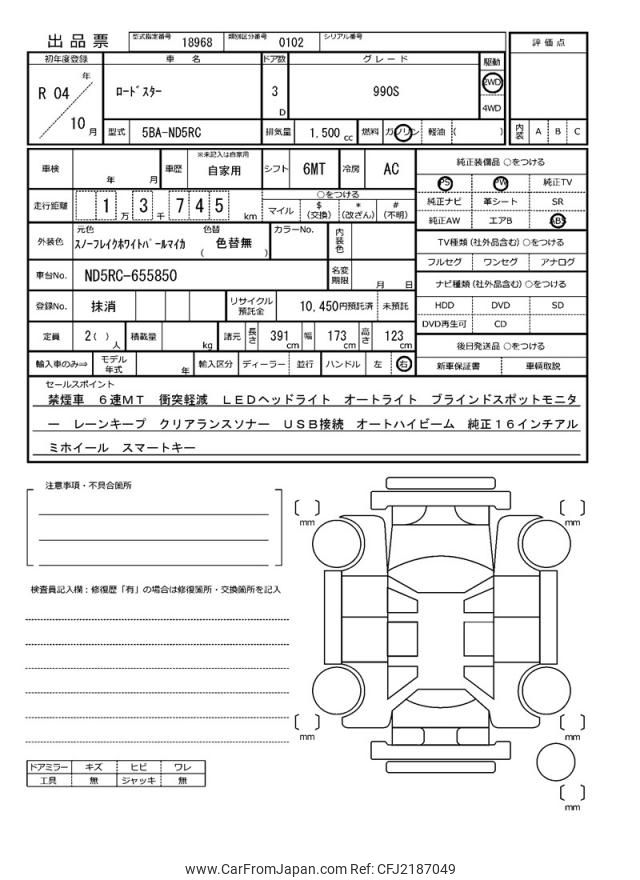 出品票 型式指定番号 18968 類別区分番号 0102 シリアル番号
評価点
初年度登録 車名 ドア数 グレード 駆動
R 04 年 10 月
ロードスター 3 D 990S 2WD 4WD
型式 5BA-ND5RC 排気量 1.500 cc 燃料 ガソリン 軽油 ( )
内装 A B C
車検 年 月 車歴 ※未記入は自家用 自家用 シフト 6MT 冷房 AC
純正装備品 ○をつける
PS PW 純正TV
純正ナビ 革シート SR
純正AW エアB ABS
走行距離 1 万 3 千 7 4 5 km
○をつける
マイル $ (交換) * (改ざん) # (不明)
外装色 元色 スノーフレイクホワイトパールマイカ 色替 ( 色替無 ) カラーNo. 内装色
TV種類 (社外品含む) ○をつける
フルセグ ワンセグ アナログ
車台No. ND5RC-655850 名変期限 月 日
ナビ種類 (社外品含む) ○をつける
HDD DVD SD
DVD再生可 CD
登録No. 抹消 リサイクル預託金 10,450円預託済 未預託
定員 2( ) 人 積載量 kg 諸元 長さ 391 cm 幅 173 cm 高さ 123 cm
後日発送品 ○をつける
新車保証書 車輌取説
輸入車のみ⇒ モデル年式 年 輸入区分 ディーラー 並行 ハンドル 左 右
セールスポイント
禁煙車 6速MT 衝突軽減 LEDヘッドライト オートライト ブラインドスポットモニタ
ー レーンキープ クリアランスソナー USB接続 オートハイビーム 純正16インチアル
ミホイール スマートキー
注意事項・不具合箇所
検査員記入欄：修復歴「有」の場合は修復箇所・交換箇所を記入
mm
mm
mm
mm
mm
ドアミラー キズ ヒビ ワレ
工具 無 ジャッキ 無
www.CarFromJapan.com Ref: CFJ2187049